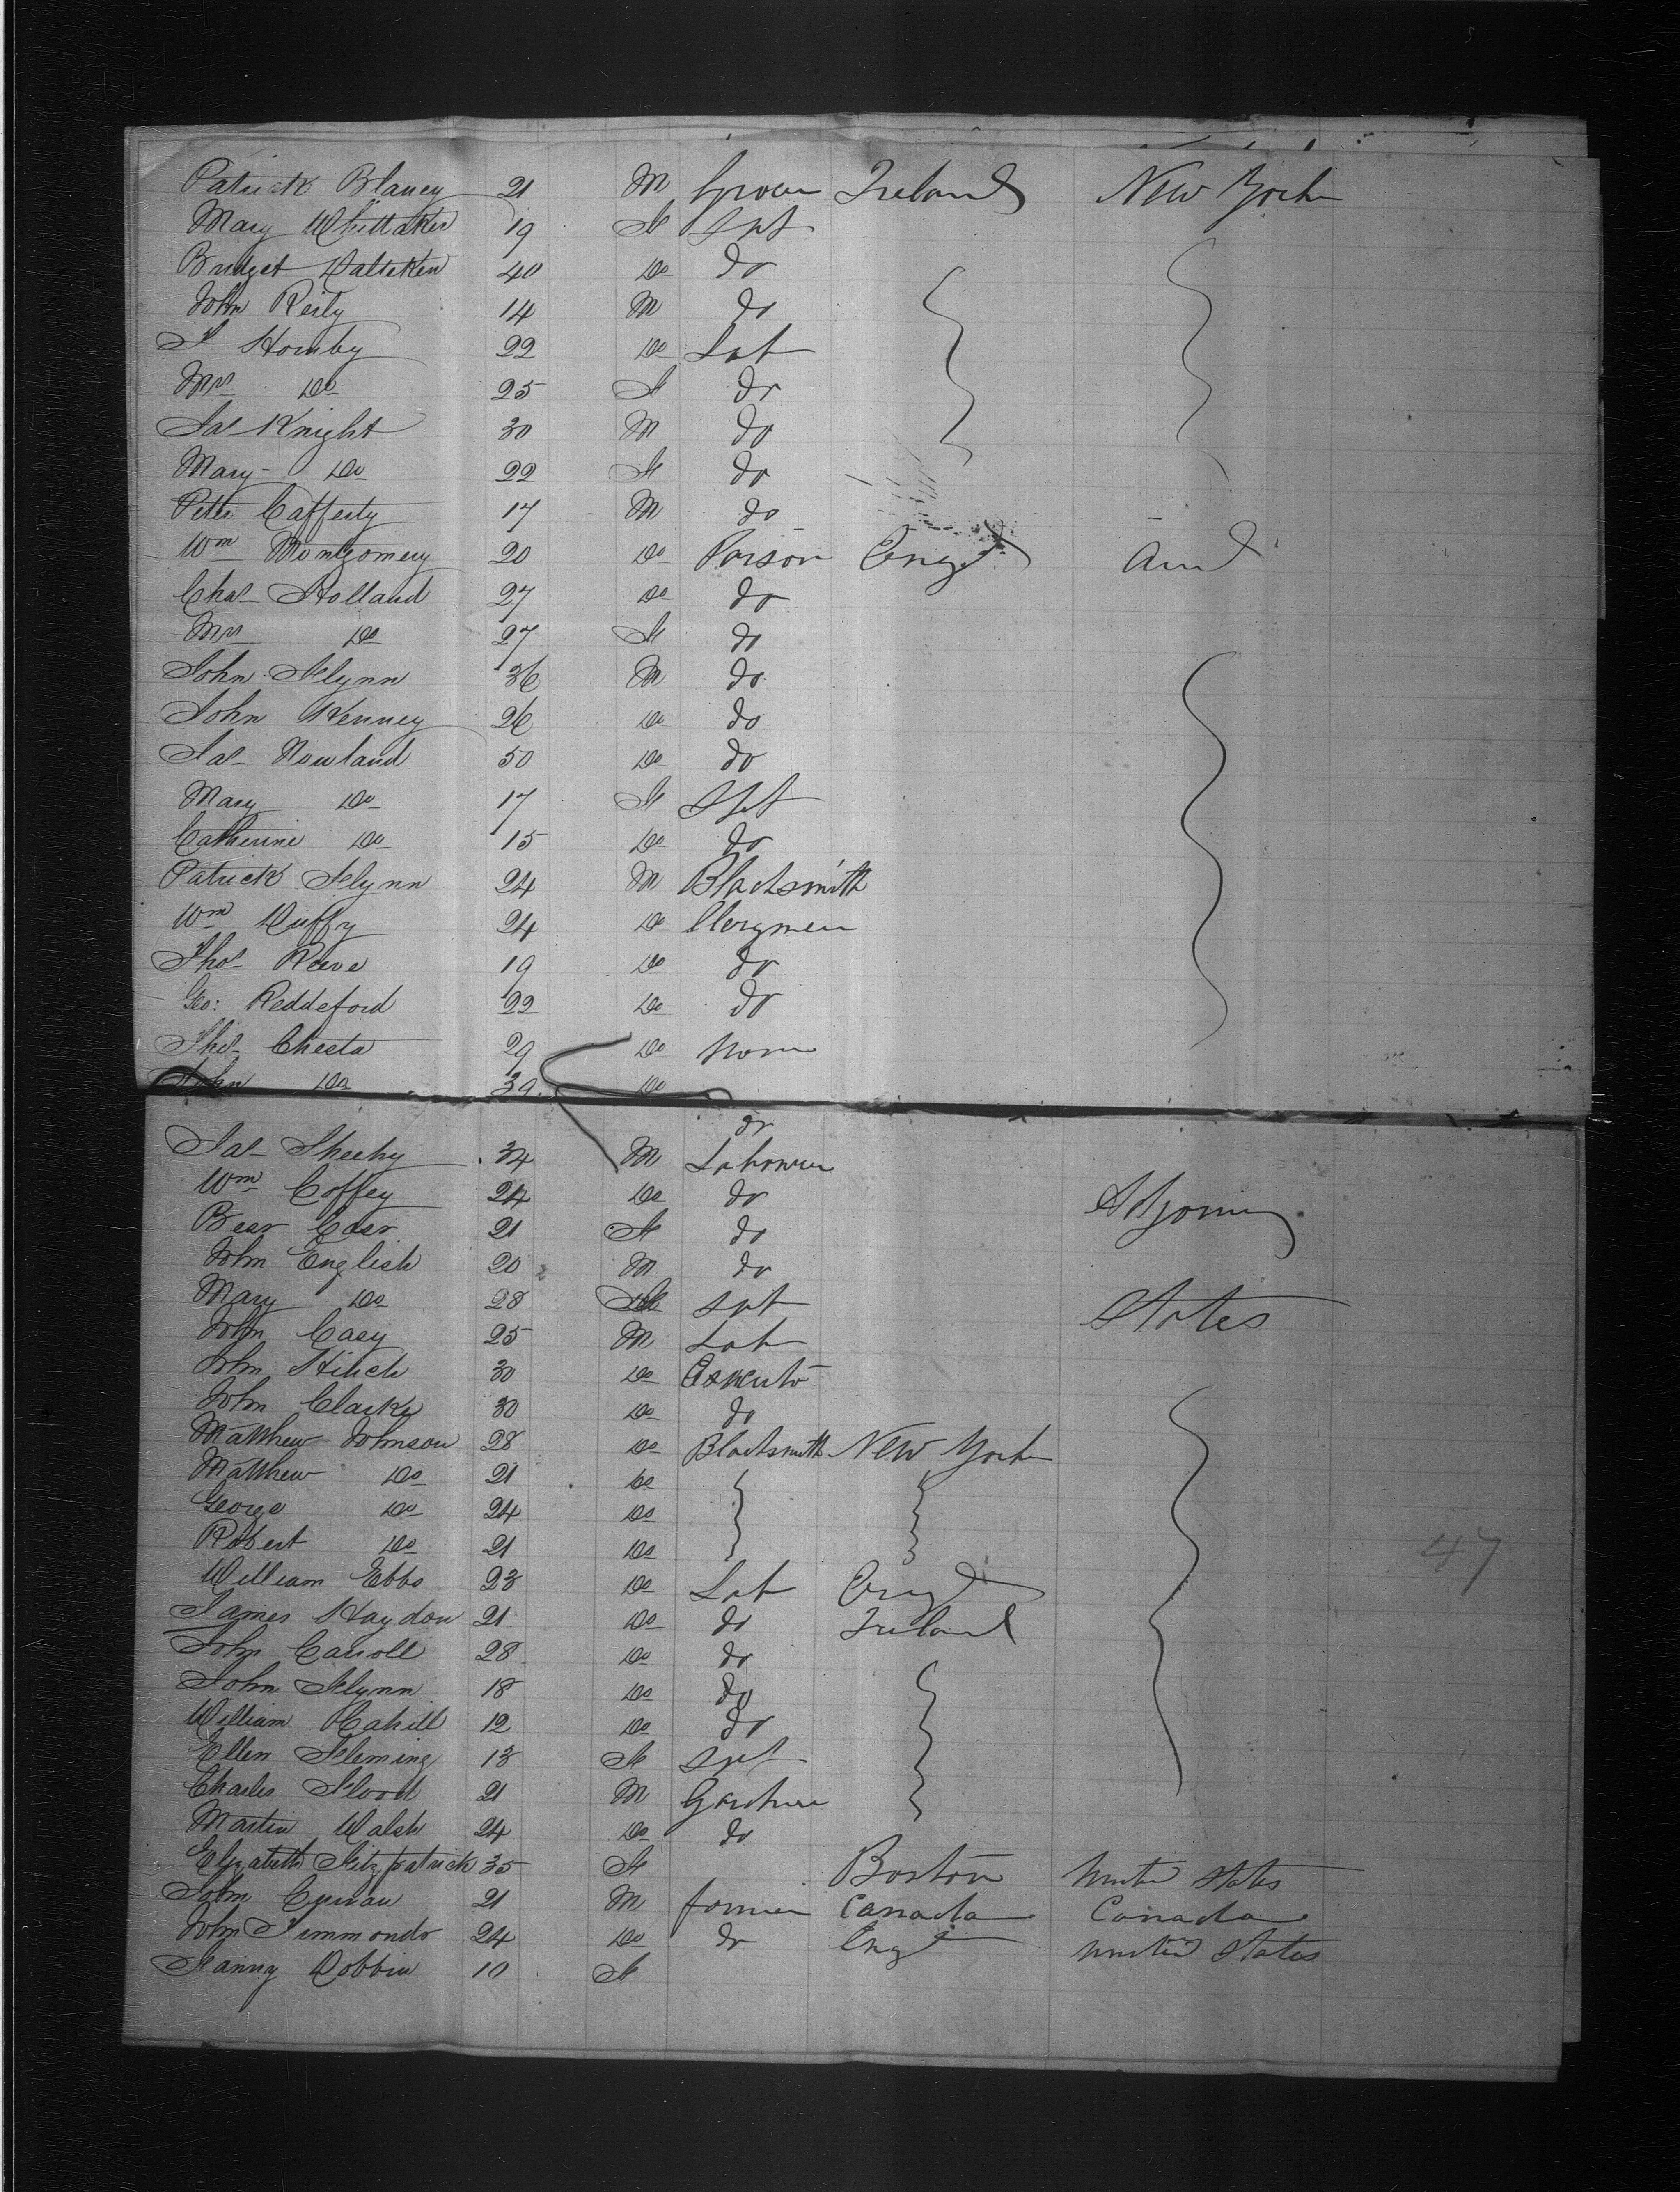 Patrick Blaney 21 M Grocer Ireland New York
Mary Whittaker 19 F Spt
Bridget 40 Do do
John Reily 14 M do
Hornby 22 Do Lab
Mrs Do 25 F do
Jas Knight 30 M do
Mary Do 22 F do
Peter Cafferty 17 M do
Wm Montgomery 20 Do Parson Engd and
Chas Holland 27 Do do
Mrs Do 27 F do
John Flynn 36 M do
John Kenney 26 Do do
Jas Nowland 50 Do do
Mary Do 17 F Spt
Catherine Do 15 Do do
Patrick Flynn 24 M Blacksmith
Wm Duffy 24 Do Clergmen
Thos Reeve 19 Do do
Geo: Reddeford 22 Do do
Thos Chesta 29 Do None
John Do 39 Do
do
Jas Sheehy 34 M Labourer
Wm Coffey 24 Do do
21 F do
Adjoining
John English 20 M do
Mary Do 28 F Spt States
John Casy 25 M Lab
John Hitch 30 Do
John Clarke 30 Do do
Matthew Johnson 28 Do Blacksmith New York
Matthew Do 21 Do
George Do 24 Do
Robert Do 21 Do
William Ebbs 23 Do Lab Engd
James Haydon 21 Do do Ireland
John Carroll 28 Do do
John Flynn 18 Do do
William Cahill 12 Do do
Ellen Fleming 13 F Spt
Charles Flood 21 M Gardner
Martin Walsh 24 Do do
Elizabeth Fitzpatrick 35 F Boston United States
John Curran 21 M farmer Canada Canada
John Simmonds 24 Do do Engd United States
Fanny Dobbin 10 F
47